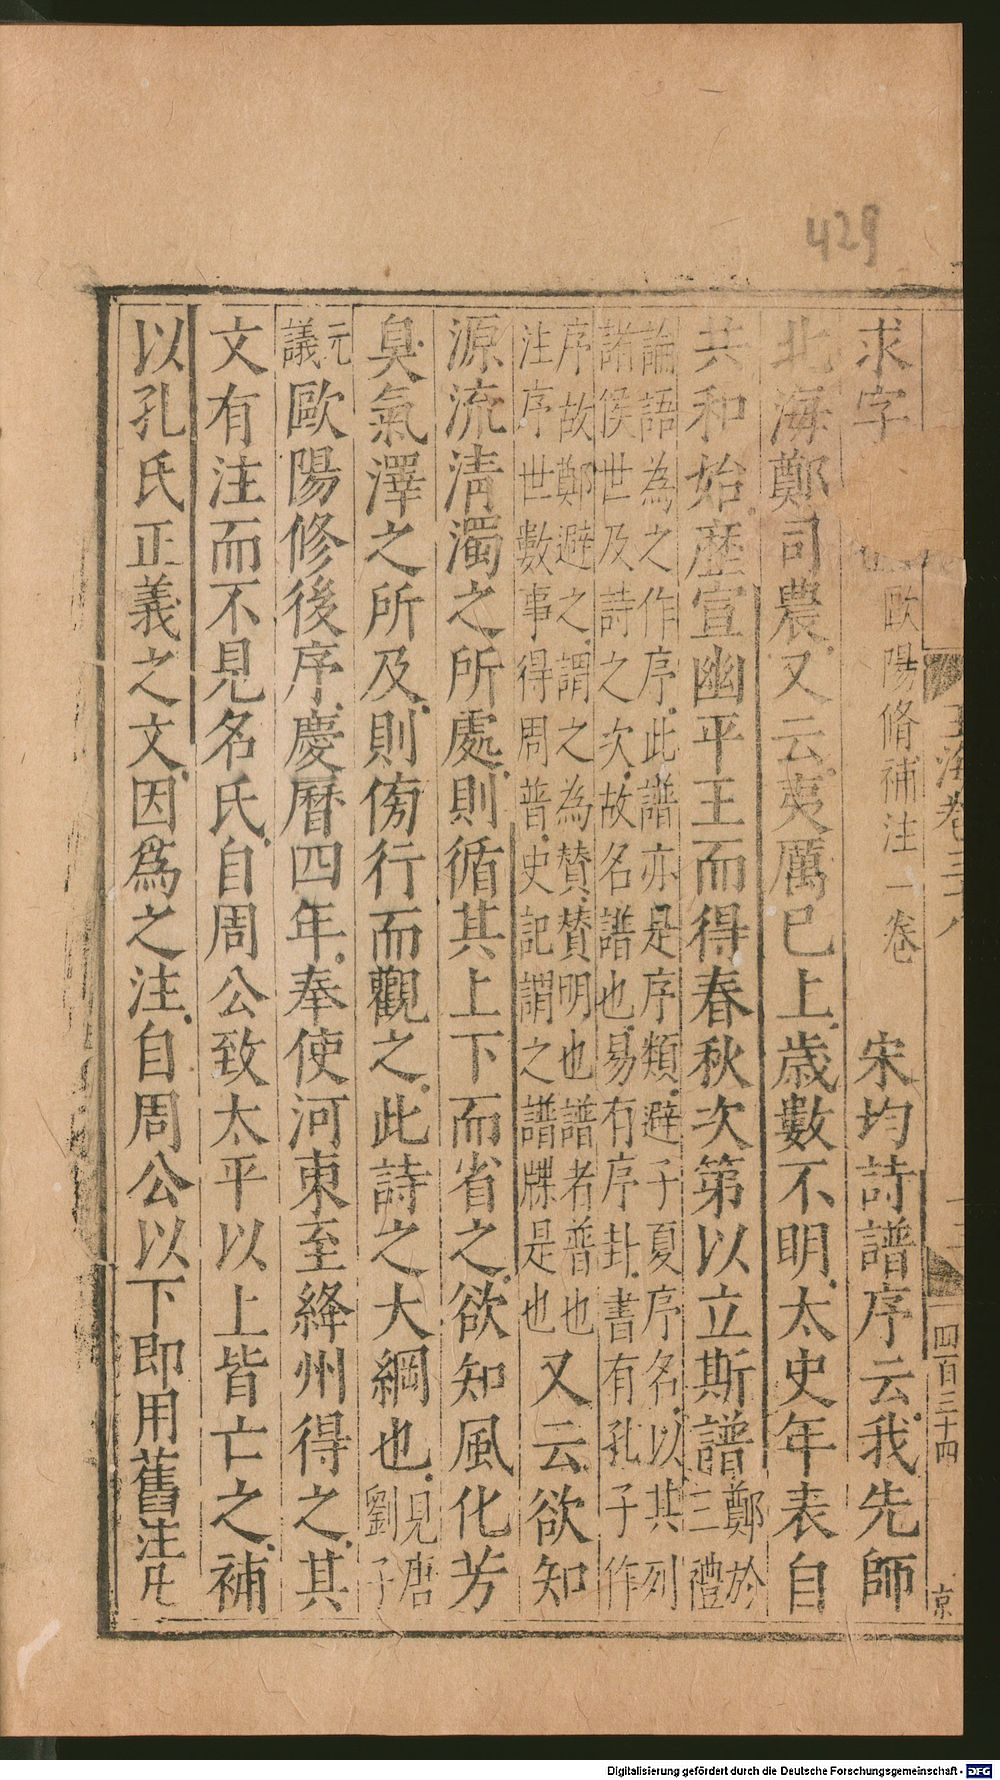 429
求字 歐陽脩補注一卷 宋均詩譜序云我先師
北海鄭司農又云夷厲已上歲數不明太史年表自
共和始歷宣幽平王而得春秋次第以立斯譜鄭於三禮
論語為之作序此譜亦是序類避子夏序名以其列
諸侯世及詩之次故名譜也易有序卦書有孔子作
序故鄭避之謂之為贊贊明也譜者普也
注序世數事得周普史記謂之譜牒是也又云欲知
源流清濁之所處則循其上下而省之欲知風化芳
臭氣澤之所及則傍行而觀之此詩之大綱也見唐劉子
元議歐陽修後序慶曆四年奉使河東至絳州得之其
文有注而不見名氏自周公致太平以上皆亡之補
以孔氏正義之文因爲之注自周公以下即用舊注凡
玉海卷三十八
四百三十四
京
Digitalisierung gefördert durch die Deutsche Forschungsgemeinschaft - DFG